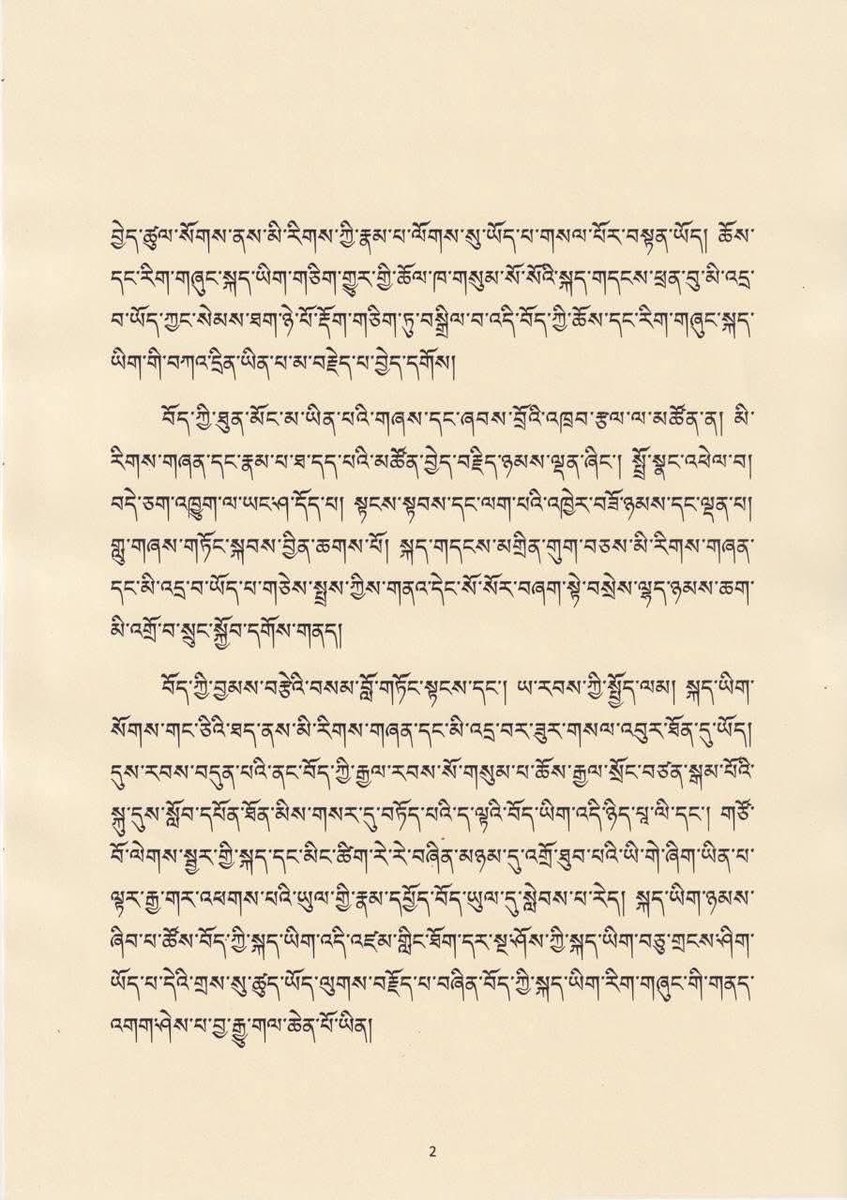 བྱེད་ཚུལ་སོགས་ནས་མི་རིགས་ཀྱི་རྣམ་པ་ལོགས་སུ་ཡོད་པ་གསལ་པོར་བསྟན་ཡོད། ཆོས་
དང་རིག་གཞུང་སྐད་ཡིག་གཅིག་གྱུར་གྱི་ཆོལ་ཁ་གསུམ་སོ་སོའི་སྐད་གདངས་ཕྲན་བུ་མི་འདྲ་
བ་ཡོད་ཀྱང་སེམས་ཐག་ཉེ་པོ་རྡོག་གཅིག་ཏུ་བསྒྲིལ་བ་འདི་བོད་ཀྱི་ཆོས་དང་རིག་གཞུང་སྐད་
ཡིག་གི་བཀའ་དྲིན་ཡིན་པ་མ་བརྗེད་པ་བྱེད་དགོས།
བོད་ཀྱི་ཐུན་མོང་མ་ཡིན་པའི་གཞས་དང་ཞབས་བྲོའི་འཁྲབ་རྩལ་ལ་མཚོན་ན། མི་
རིགས་གཞན་དང་རྣམ་པ་ཐ་དད་པའི་མཚོན་བྱེད་བརྗིད་ཉམས་ལྡན་ཞིང་། སྤྲོ་སྣང་འཕེལ་བ།
བདེ་ཅག་འཁྱུག་ལ་ཡང་ཤ་དོད་པ། སྟངས་སྟབས་དང་ལག་པའི་འཁྱེར་བཟོ་ཉམས་དང་ལྡན་པ།
གླུ་གཞས་གཏོང་སྐབས་བྱིན་ཆགས་པོ། སྐད་གདངས་མགྲིན་གུག་བཅས་མི་རིགས་གཞན་
དང་མི་འདྲ་བ་ཡོད་པ་གཅེས་སྤྲས་ཀྱིས་གནའ་དེང་སོ་སོར་བཞག་སྟེ་བསྲེས་ལྷད་ཉམས་ཆག་
མི་འགྲོ་བ་སྲུང་སྐྱོབ་དགོས་གནད།
བོད་ཀྱི་བྱམས་བརྩེའི་བསམ་བློ་གཏོང་སྟངས་དང་། ཡ་རབས་ཀྱི་སྤྱོད་ལམ། སྐད་ཡིག་
སོགས་གང་ཅིའི་ཐད་ནས་མི་རིགས་གཞན་དང་མི་འདྲ་བར་ཟུར་གསལ་འབུར་ཐོན་དུ་ཡོད།
དུས་རབས་བདུན་པའི་ནང་བོད་ཀྱི་རྒྱལ་རབས་སོ་གསུམ་པ་ཆོས་རྒྱལ་སྲོང་བཙན་སྒམ་པོའི་
སྐུ་དུས་སློབ་དཔོན་ཐོན་མིས་གསར་དུ་བཏོད་པའི་ད་ལྟའི་བོད་ཡིག་འདི་ཉིད་པཱ་ལི་དང་། གཙོ་
བོ་ལེགས་སྦྱར་གྱི་སྐད་དང་མིང་ཚིག་རེ་རེ་བཞིན་མཉམ་དུ་འགྲོ་ཐུབ་པའི་ཡི་གེ་ཞིག་ཡིན་པ་
ལྟར་རྒྱ་གར་འཕགས་པའི་ཡུལ་གྱི་རྣམ་དཔྱོད་བོད་ཡུལ་དུ་སླེབས་པ་རེད། སྐད་ཡིག་ཉམས་
ཞིབ་པ་ཚོས་བོད་ཀྱི་སྐད་ཡིག་འདི་འཛམ་གླིང་ཐོག་དར་སྔ་ཤོས་ཀྱི་སྐད་ཡིག་བཅུ་གྲངས་ཤིག་
ཡོད་པ་དེའི་གྲས་སུ་ཚུད་ཡོད་ལུགས་བརྗོད་པ་བཞིན་བོད་ཀྱི་སྐད་ཡིག་རིག་གཞུང་གི་གནད་
འགག་ཤེས་པ་བྱ་རྒྱུ་གལ་ཆེན་པོ་ཡིན།
2